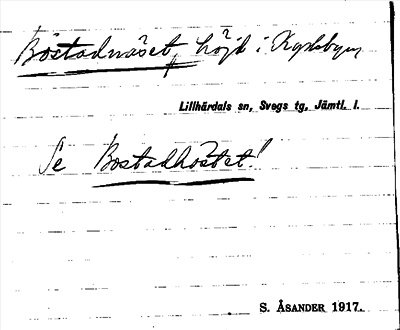 Bostadnåset, höjd i
Lillhärdals sn, Svegs tg, Jämtl. l.
Se Bostadhåstet!
S. ÅSANDER 1917.